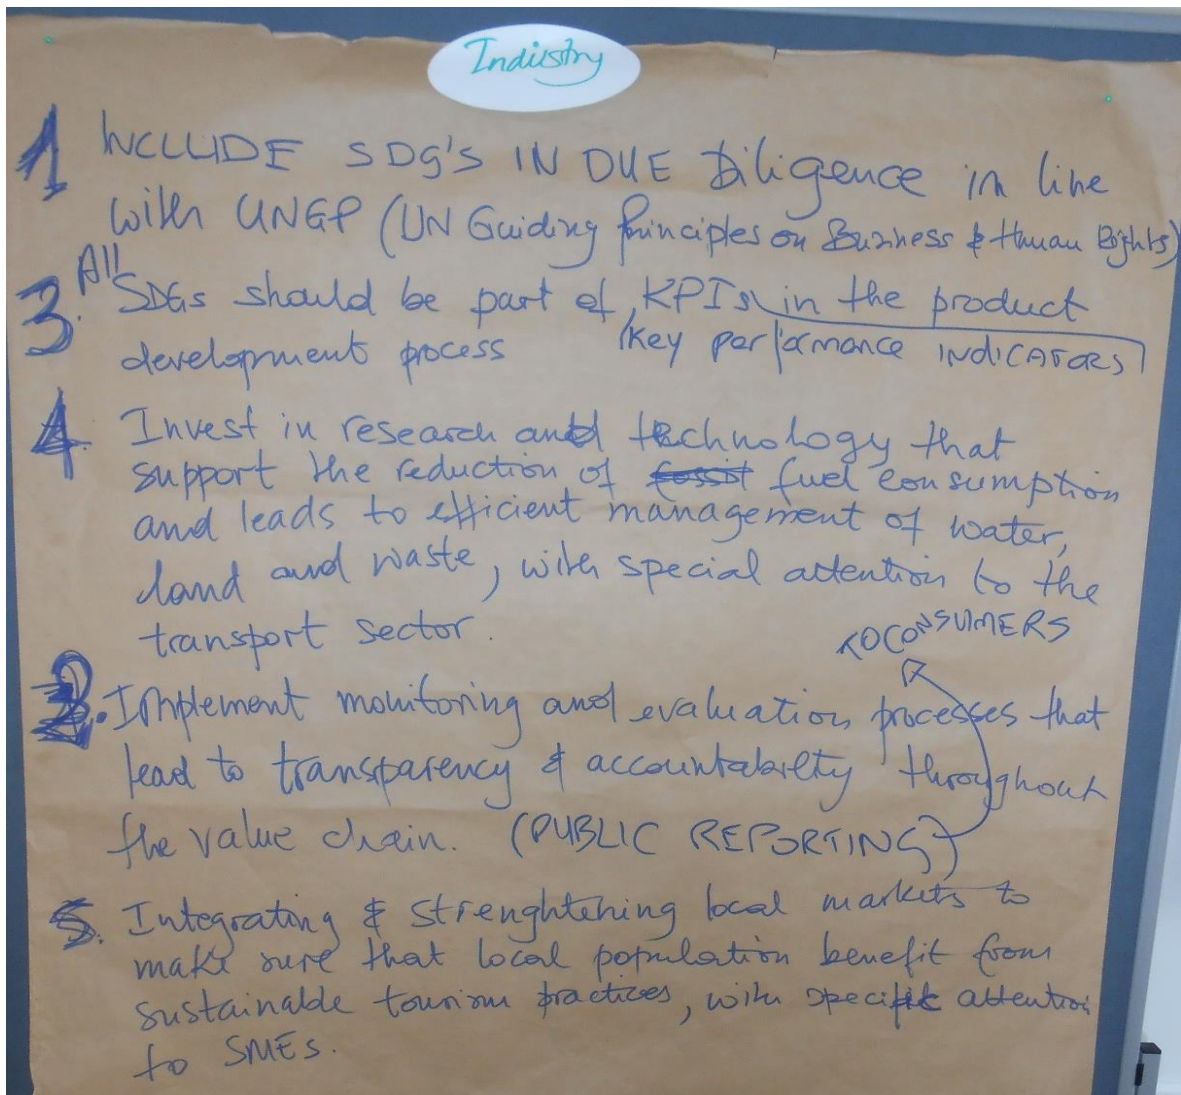 Industry
1 INCLUDE SDG'S IN DUE Diligence in line
with UNGP (UN Guiding Principles on Business & Human Rights)
3. All SDGs should be part of KPIs in the product
development process (key performance INDICATORS)
4. Invest in research and technology that
support the reduction of fuel consumption
and leads to efficient management of water,
land and waste, with special attention to the
transport sector.
TO CONSUMERS
2. Implement monitoring and evaluation processes that
lead to transparency & accountability throughout
the value chain. (PUBLIC REPORTING)
5. Integrating & strenghtening local markets to
make sure that local population benefit from
sustainable tourism practices, with specific attention
to SMEs.